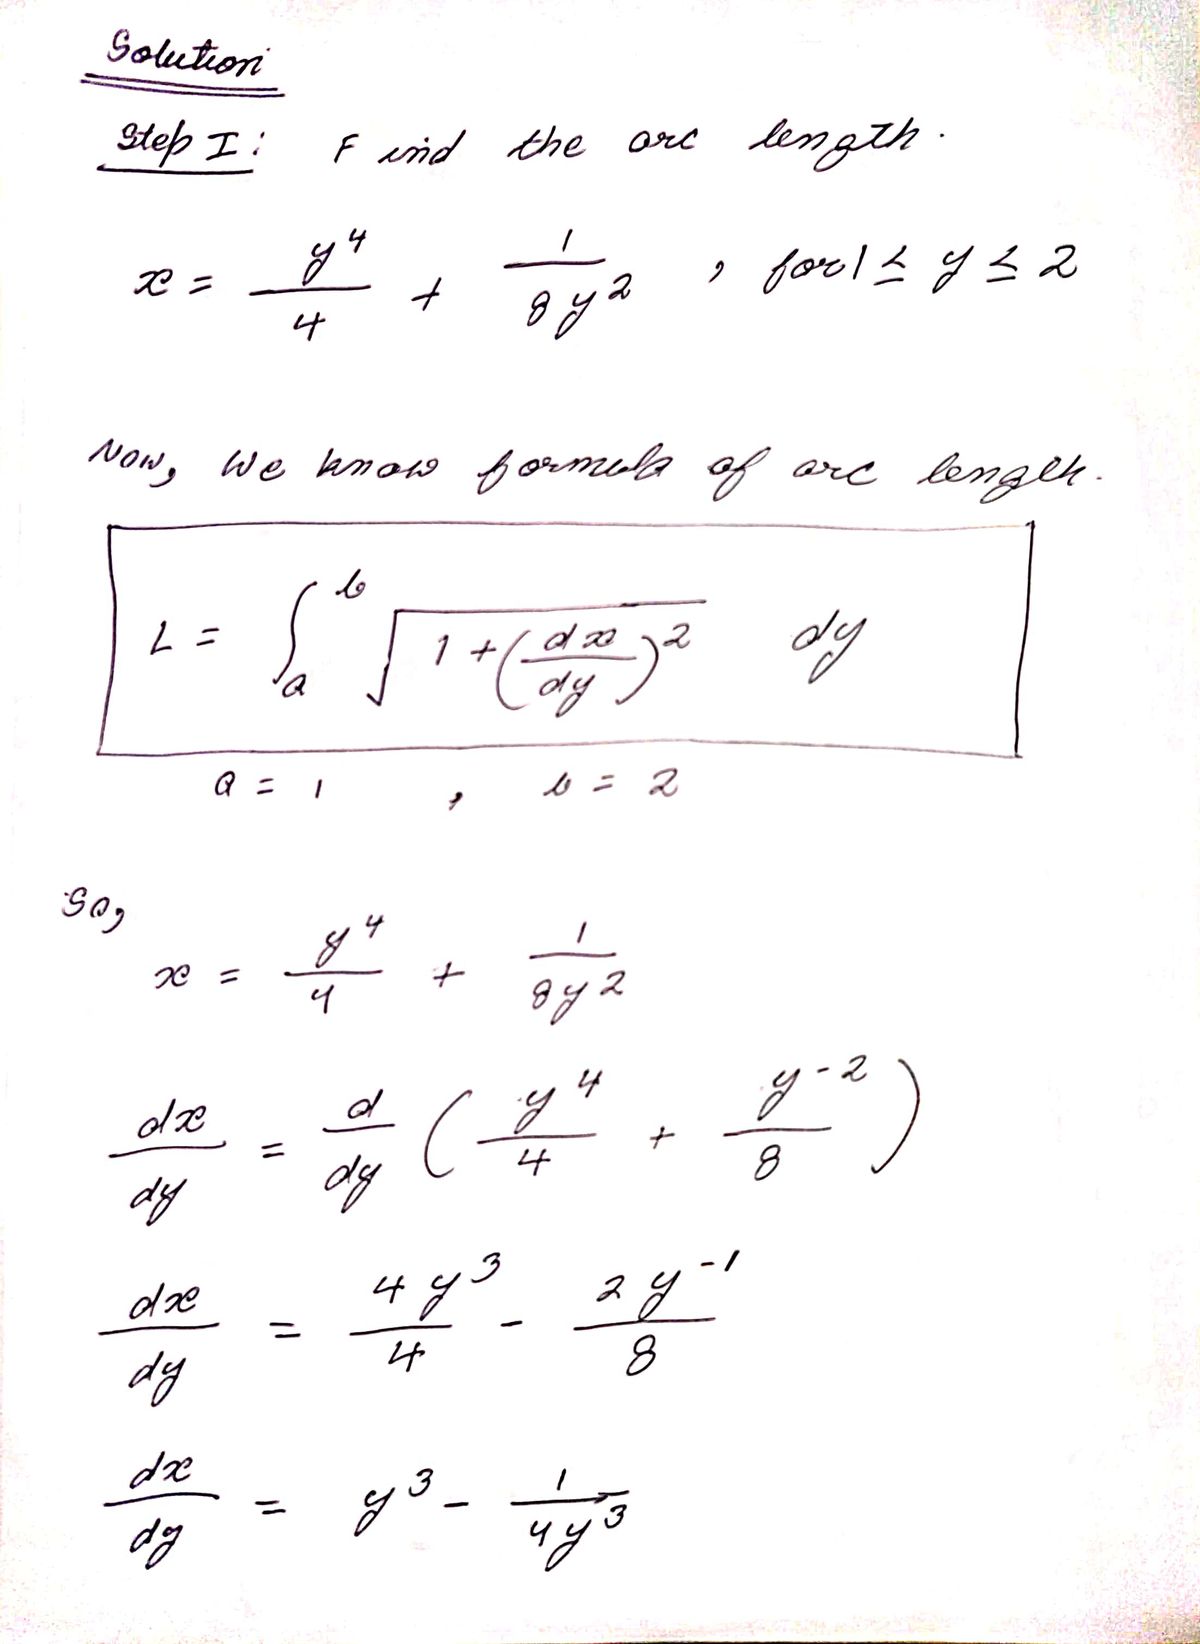 Solution
Step I: Find the arc length.
x = y^4/4 + 1/(8y^2) , for 1 ≤ y ≤ 2
Now, We know formula of arc length.
L = ∫_a^b √(1 + (dx/dy)^2) dy
a = 1 , b = 2
So,
x = y^4/4 + 1/(8y^2)
dx/dy = d/dy (y^4/4 + y^-2/8)
dx/dy = 4y^3/4 - 2y^-1/8
dx/dy = y^3 - 1/(4y^3)